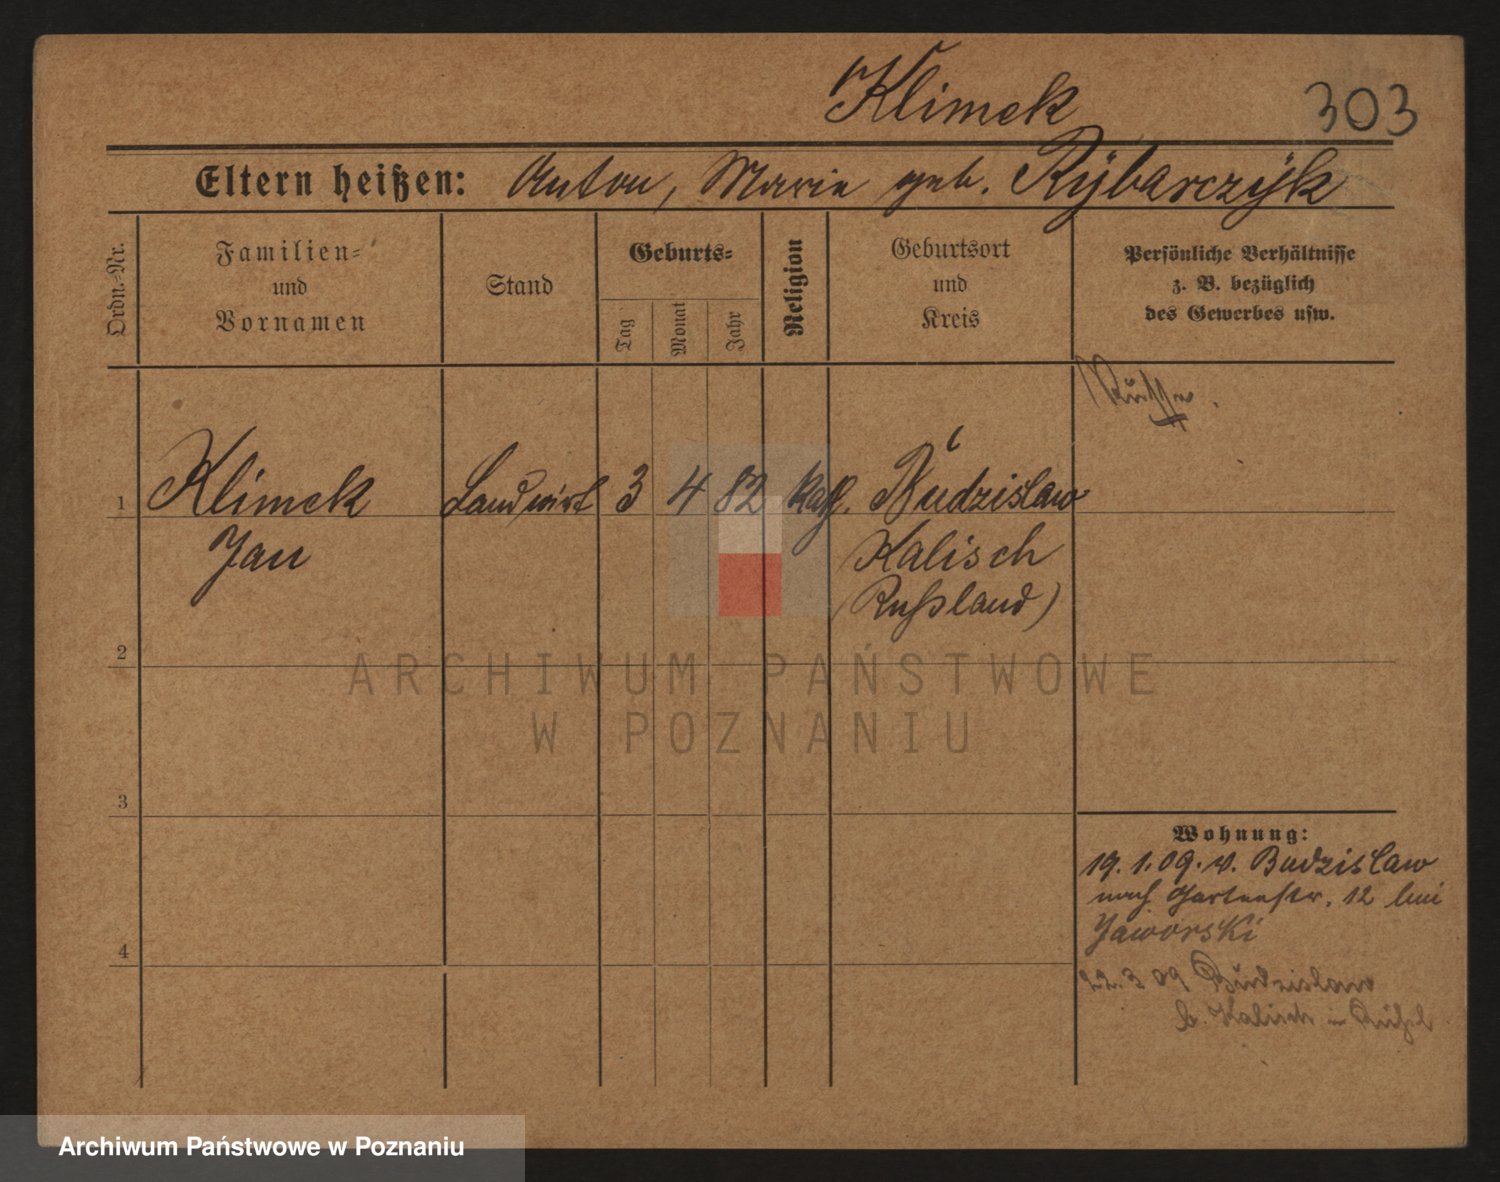 Klimek
303
Eltern heißen: Anton, Marie geb. Rÿbarczÿk
Ordn.-Nr.
Familien-
und
Vornamen
Stand
Geburts-
Tag
Monat
Jahr
Religion
Geburtsort
und
Kreis
Persönliche Verhältnisse
z. B. bezüglich
des Gewerbes usw.
Russe.
1 Klimek Landwirt 3 4 82 kath. Budzislaw
Jan Kalisch
(Rußland)
2
3
4
Wohnung:
19.1.09. v. Budzislaw
nach Gartenstr. 12 bei
Jaworski
22.3 09 Budzislaw
b. Kalisch in Rußl
ARCHIWUM PAŃSTWOWE
W POZNANIU
Archiwum Państwowe w Poznaniu